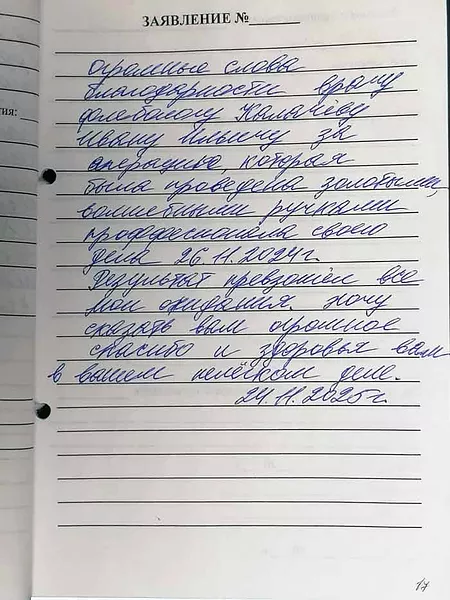 ЗАЯВЛЕНИЕ №
огромные слова
благодарности врачу
флебологу Калачёву
Ивану Ильичу за
операцию, которая
была проведена золотыми,
волшебными ручками
проффесионала своего
дела 26.11.2024г.
Результат превзошёл все
мои ожидания. Хочу
сказать вам огромное
спасибо и здоровья вам
в вашем нелёгком деле.
24.11.2025г.
ия:
17